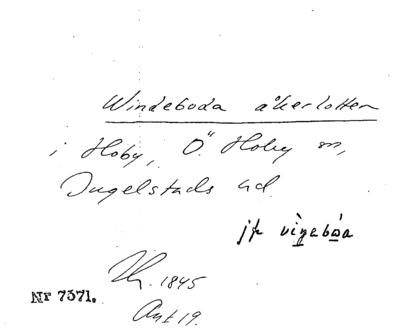 Windeboda åkerlotten
i Hoby, Ö. Hoby sn,
Ingelstads hd
jfr
1845
Nr 7371.
Akt 19.